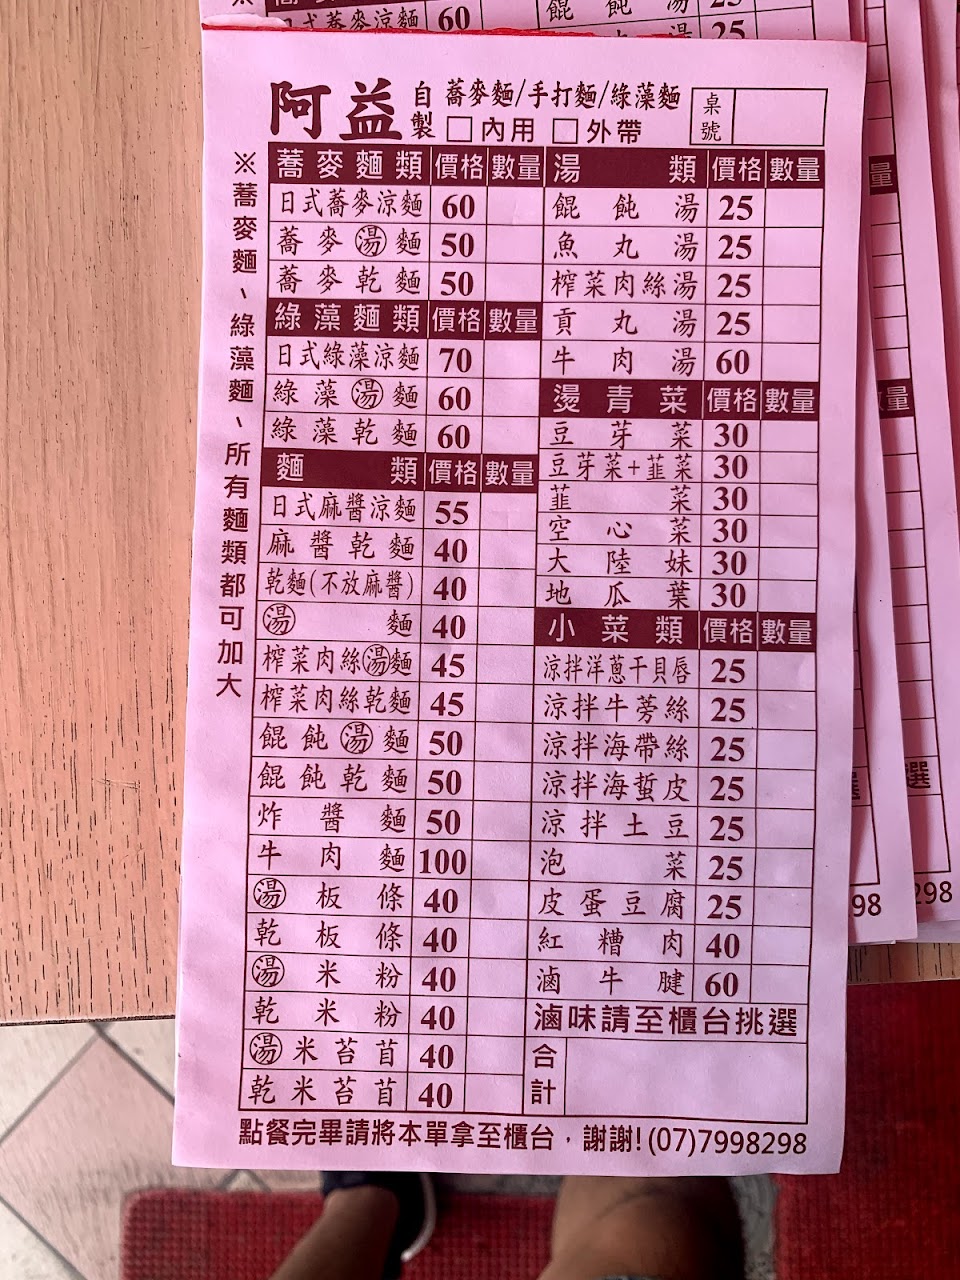 阿益 自製 蕎麥麵/手打麵/綠藻麵
□內用 □外帶
桌號
※蕎麥麵、綠藻麵、所有麵類都可加大
蕎麥麵類 價格 數量
日式蕎麥涼麵 60
蕎麥湯麵 50
蕎麥乾麵 50
綠藻麵類 價格 數量
日式綠藻涼麵 70
綠藻湯麵 60
綠藻乾麵 60
麵類 價格 數量
日式麻醬涼麵 55
麻醬乾麵 40
乾麵(不放麻醬) 40
湯麵 40
榨菜肉絲湯麵 45
榨菜肉絲乾麵 45
餛飩湯麵 50
餛飩乾麵 50
炸醬麵 50
牛肉麵 100
湯板條 40
乾板條 40
湯米粉 40
乾米粉 40
湯米苔苜 40
乾米苔苜 40
湯類 價格 數量
餛飩湯 25
魚丸湯 25
榨菜肉絲湯 25
貢丸湯 25
牛肉湯 60
燙青菜 價格 數量
豆芽菜 30
豆芽菜+韭菜 30
韭菜 30
空心菜 30
大陸妹 30
地瓜葉 30
小菜類 價格 數量
涼拌洋蔥干貝唇 25
涼拌牛蒡絲 25
涼拌海帶絲 25
涼拌海蜇皮 25
涼拌土豆 25
泡菜 25
皮蛋豆腐 25
紅糟肉 40
滷牛腱 60
滷味請至櫃台挑選
合計
點餐完畢請將本單拿至櫃台，謝謝!(07)7998298